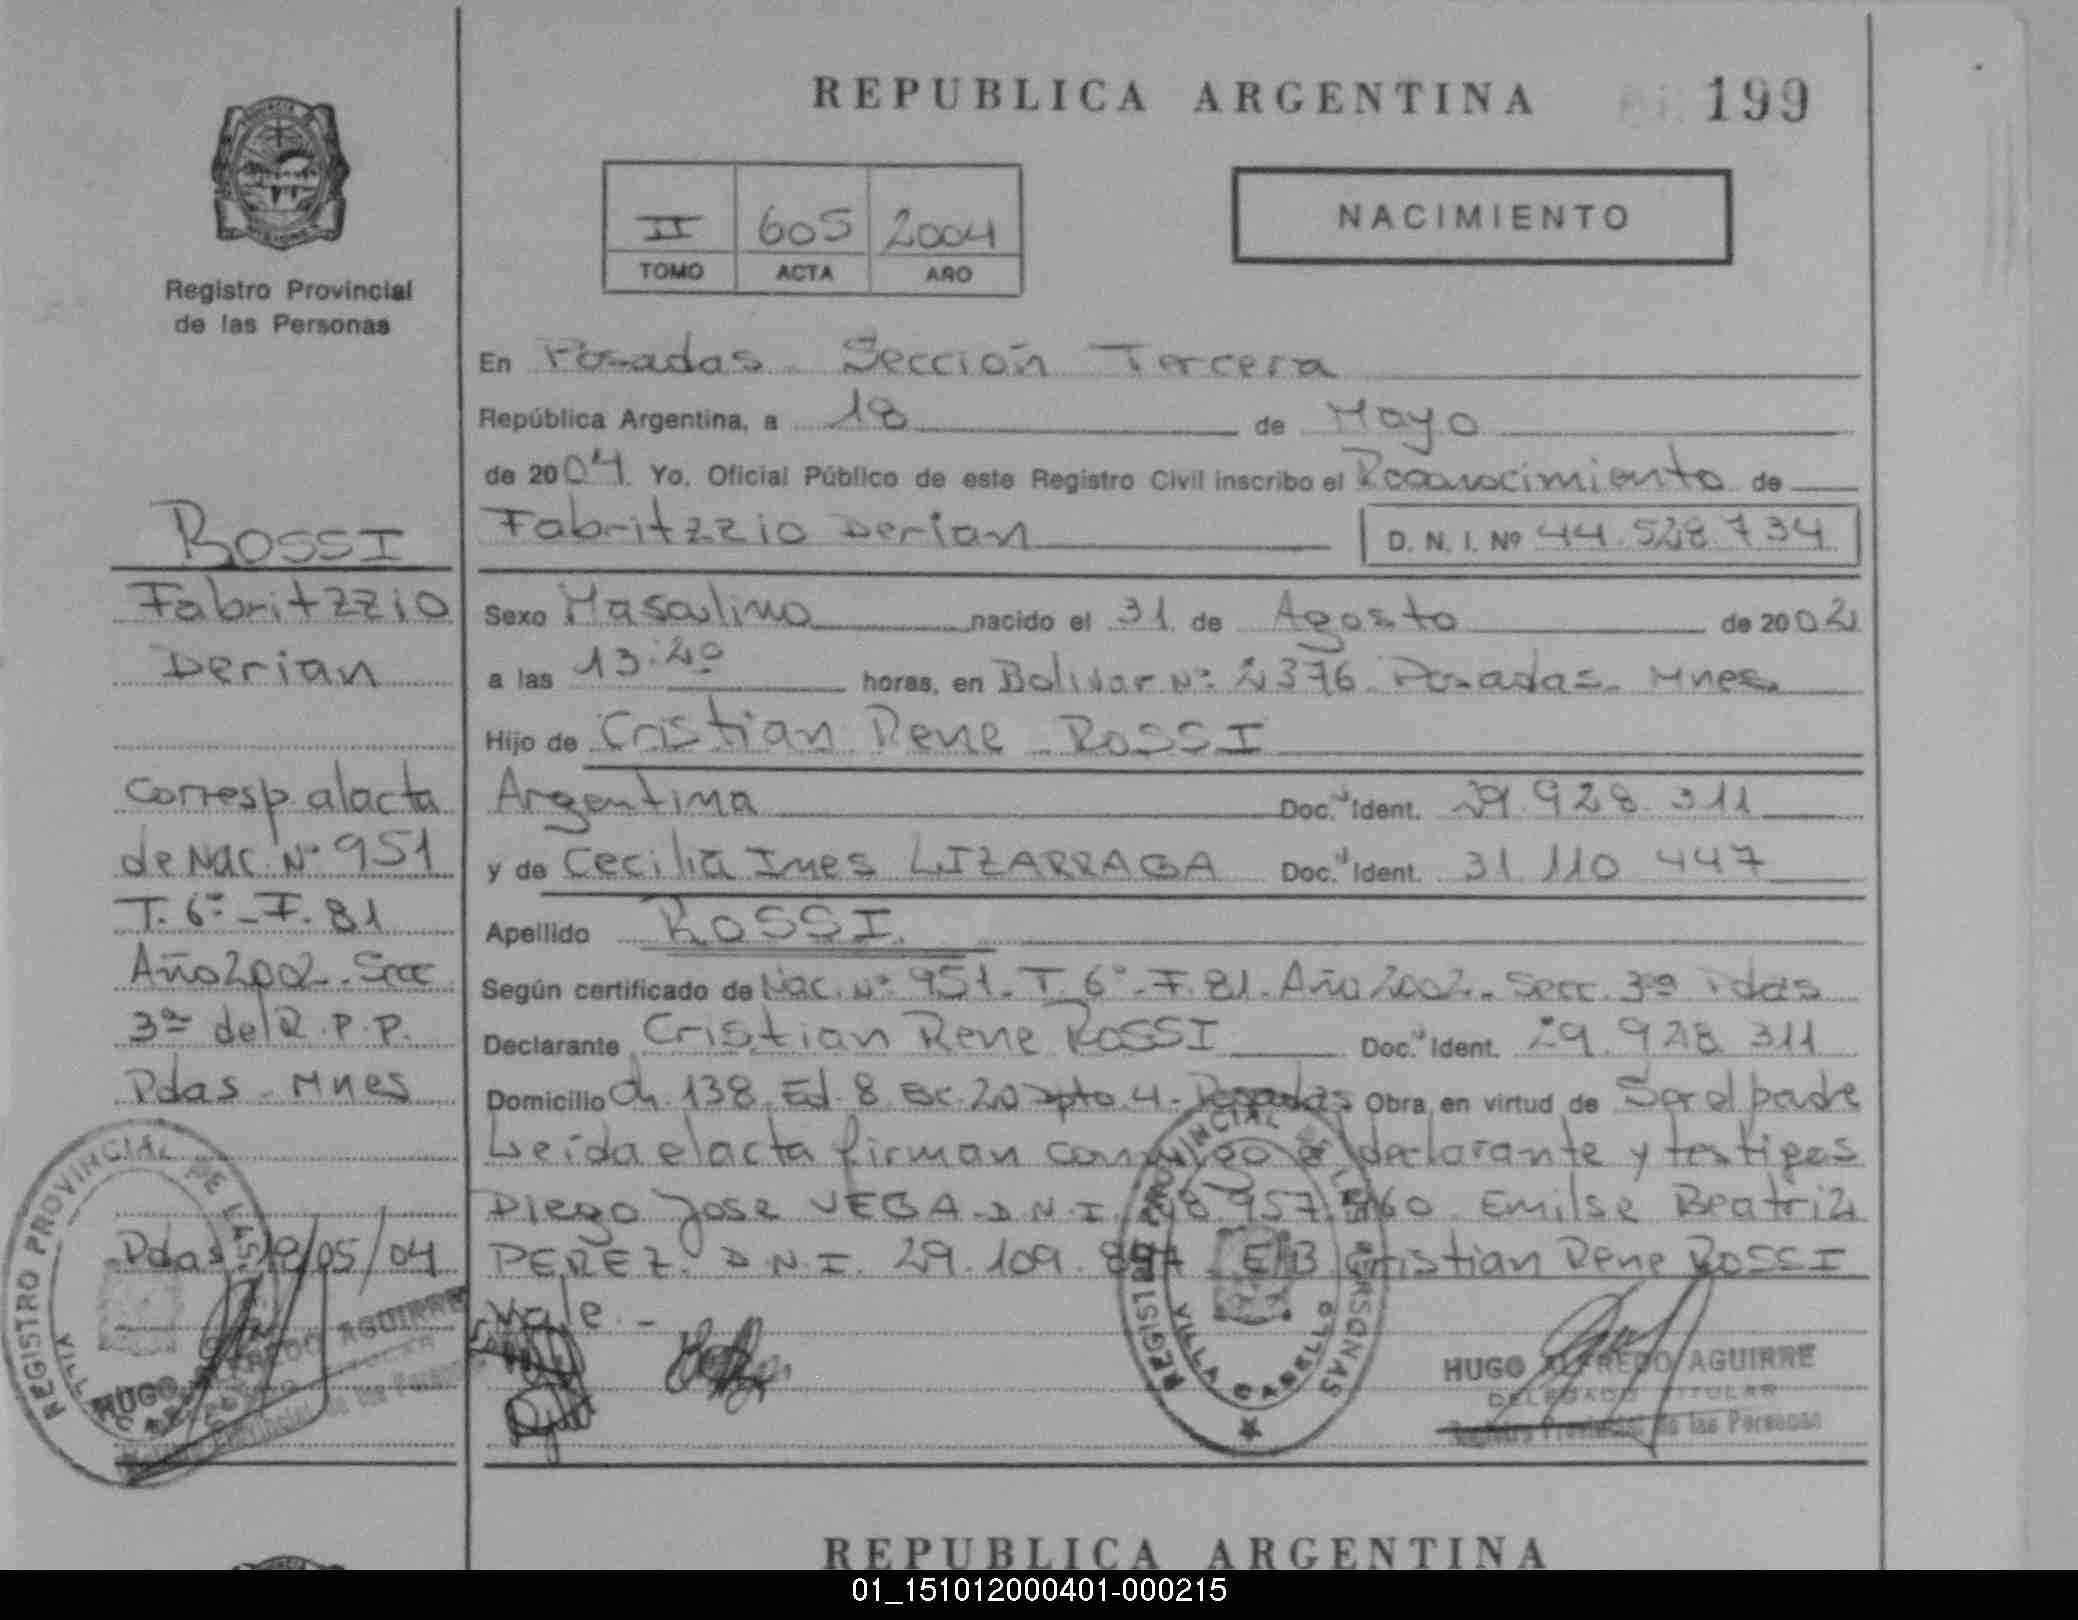 REPUBLICA ARGENTINA 199
II 605 2004
TOMO ACTA AÑO
NACIMIENTO
Registro Provincial
de las Personas
ROSSI
Fabritzzio
Derian
Corresp. al acta
de Nac. Nº 951
T. 6º - F. 81
Año 2002 - Secc
3ª del R.P.P.
Pdas - Mnes
Pdas 18/05/04
En Posadas - Sección Tercera
República Argentina, a 18 de Mayo
de 2004. Yo, Oficial Público de este Registro Civil inscribo el Reconocimiento de
Fabritzzio Derian D. N. I. Nº 44.528.734
Sexo Masculino nacido el 31 de Agosto de 2002
a las 13:20 horas, en Bolivar Nº 2376 - Posadas - Mnes
Hijo de Cristian Rene ROSSI
Argentina Doc. Ident. 29.928.311
y de Cecilia Ines LIZARRAGA Doc. Ident. 31.110.447
Apellido ROSSI
Según certificado de Nac. Nº 951 - T. 6º - F. 81 - Año 2002 - Secc. 3ª Pdas
Declarante Cristian Rene ROSSI Doc. Ident. 29.928.311
Domicilio Ch. 138 Ed. 8 Esc. 20 Dpto 4 - Posadas Obra en virtud de Ser el padre
Leída el acta firman conmigo el declarante y testigos
Diego Jose VEGA D.N.I. Emilse Beatriz
PEREZ. D.N.I. 29.109. E/B Cristian Rene ROSSI
Vale. -
REGISTRO PROVINCIAL DE LAS PERSONAS
VILLA CABELLO
HUGO ALFREDO AGUIRRE
DELEGADO TITULAR
Registro Provincial de las Personas
REGISTRO PROVINCIAL DE LAS
HUGO AGUIRRE
REPUBLICA ARGENTINA
01_151012000401-000215